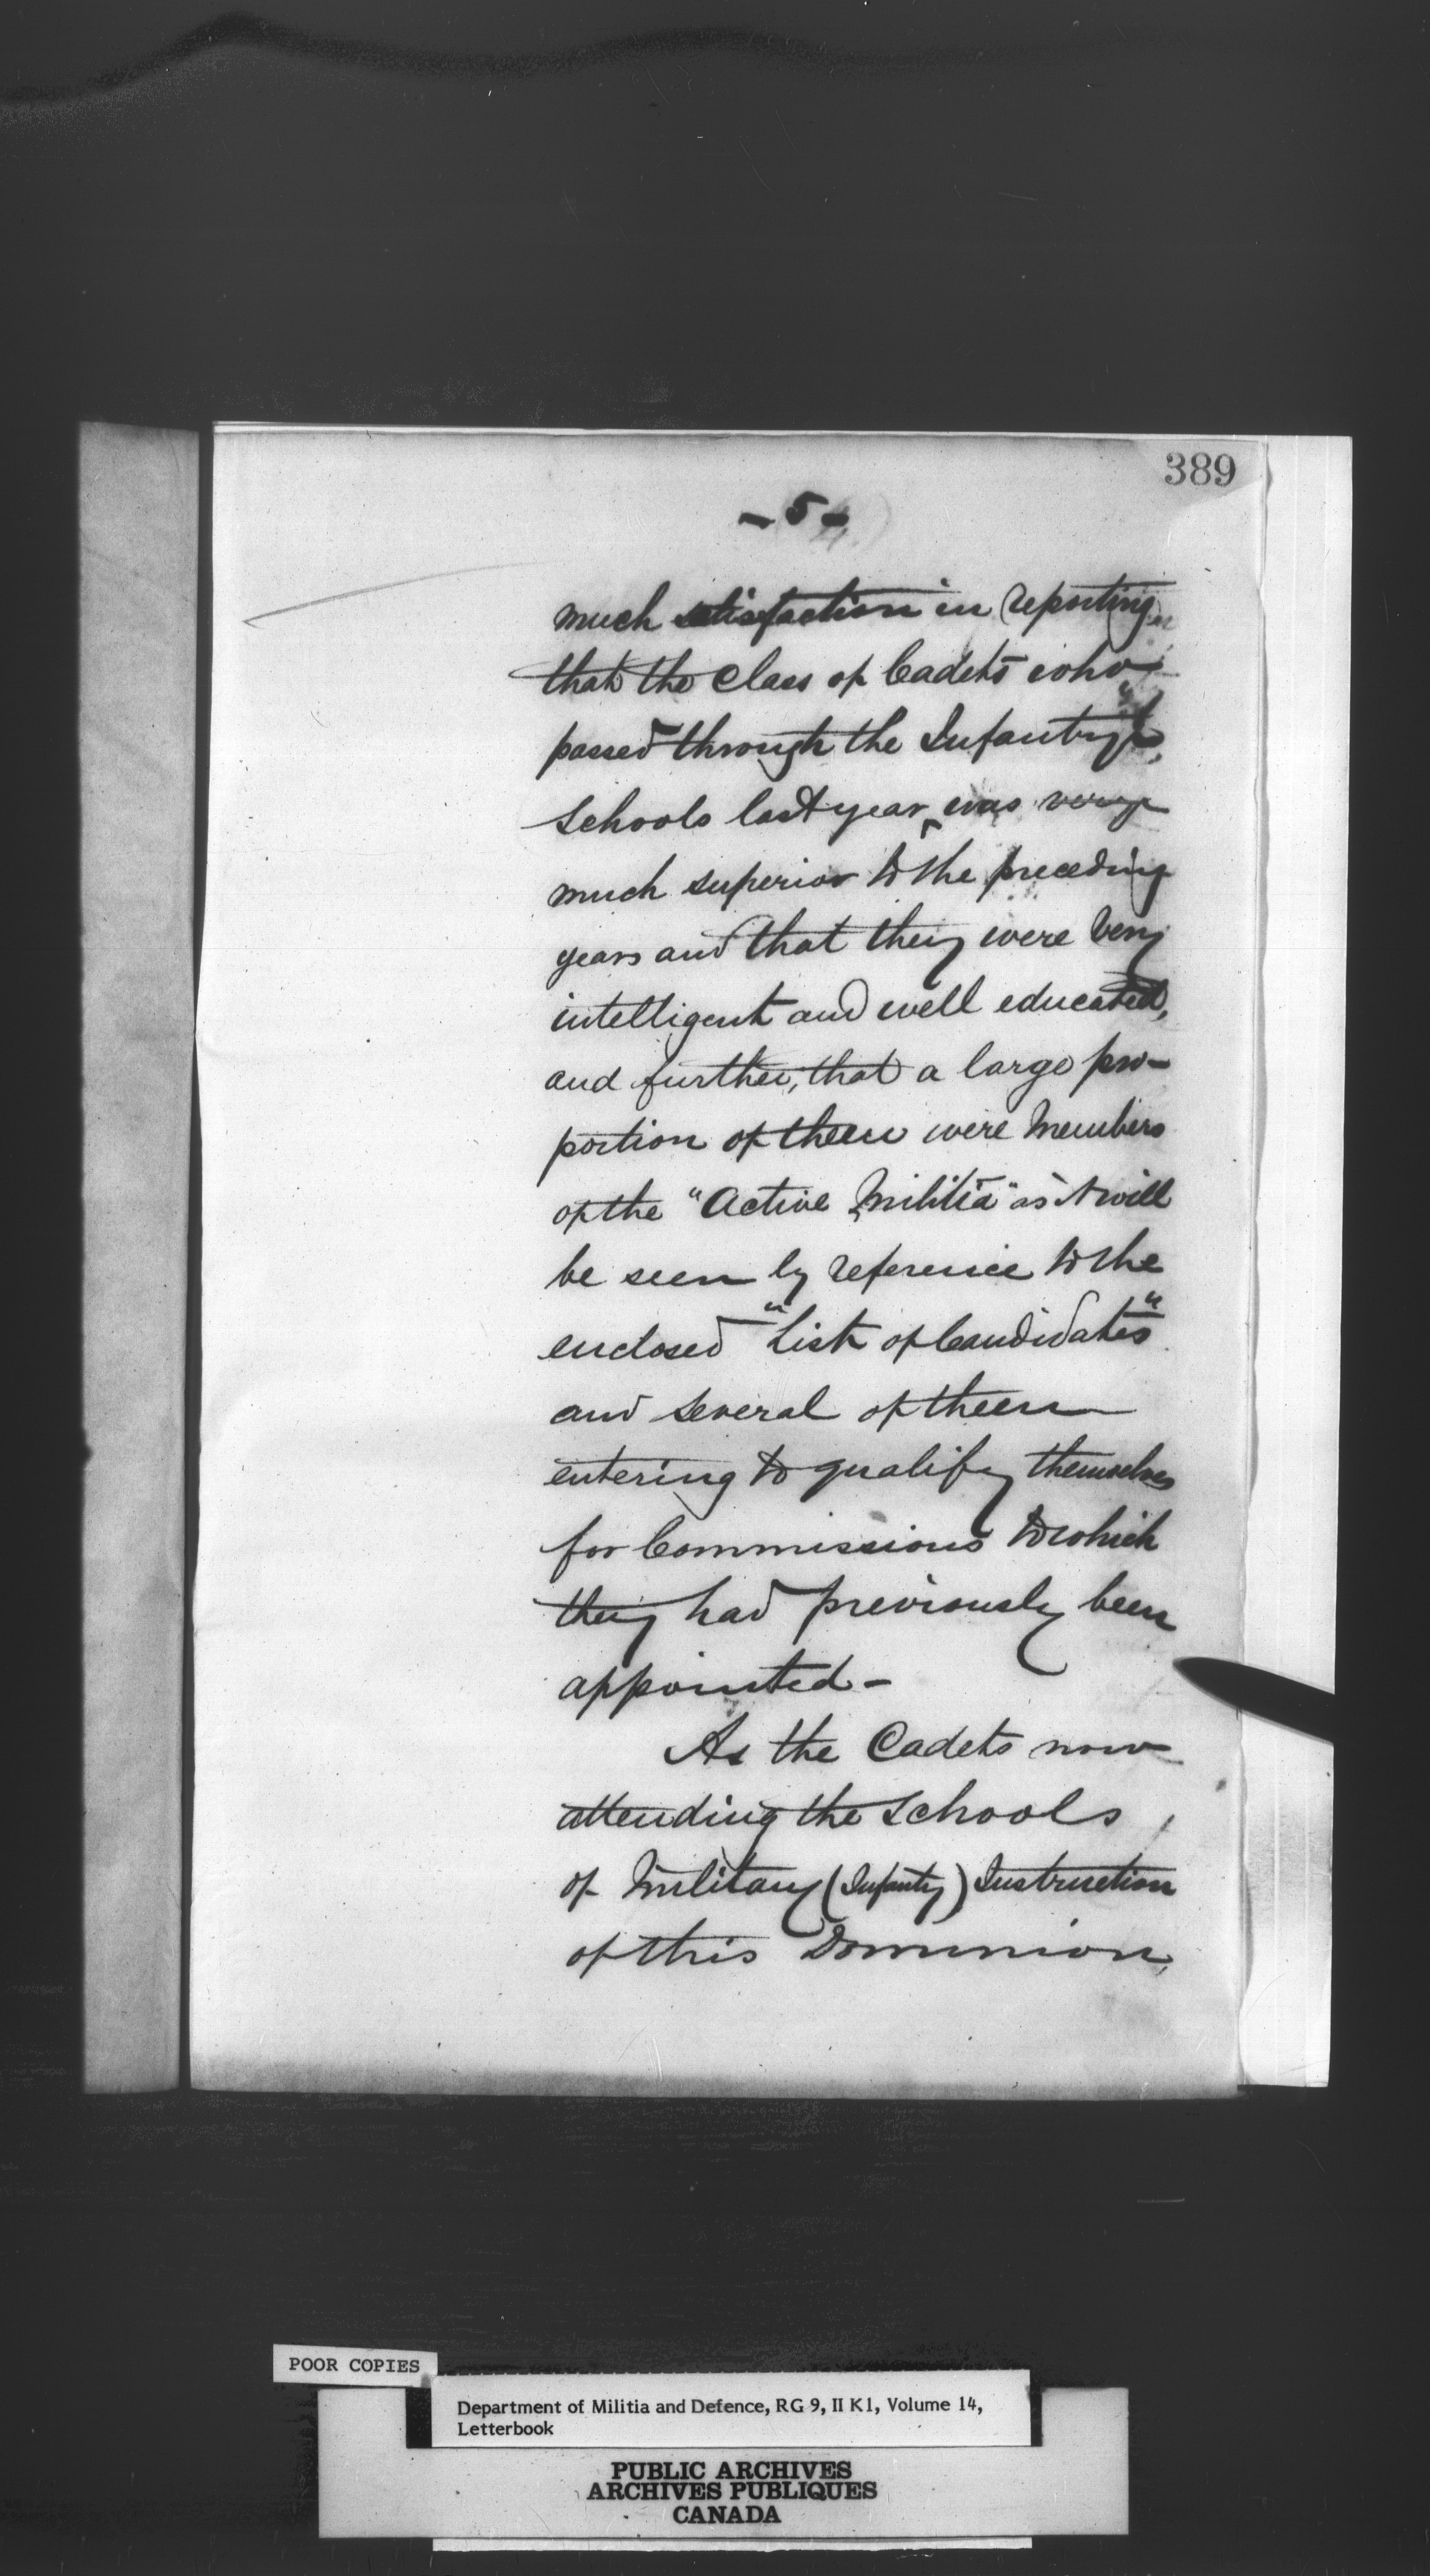 389
- 5 -
much satisfaction in reporting
that the Class of Cadets who
passed through the Infantry
Schools last year was very
much superior to the preceding
years and that they were very
intelligent and well educated,
and further, that a large pro-
portion of them were Members
of the "Active Militia" as it will
be seen by reference to the
enclosed "List of Candidates"
and several of them
entering to qualify themselves
for Commissions to which
they had previously been
appointed -
As the Cadets now
attending the Schools
of Military (Infantry) Instruction
of this Dominion,
POOR COPIES
Department of Militia and Defence, RG 9, II K1, Volume 14,
Letterbook
PUBLIC ARCHIVES
ARCHIVES PUBLIQUES
CANADA